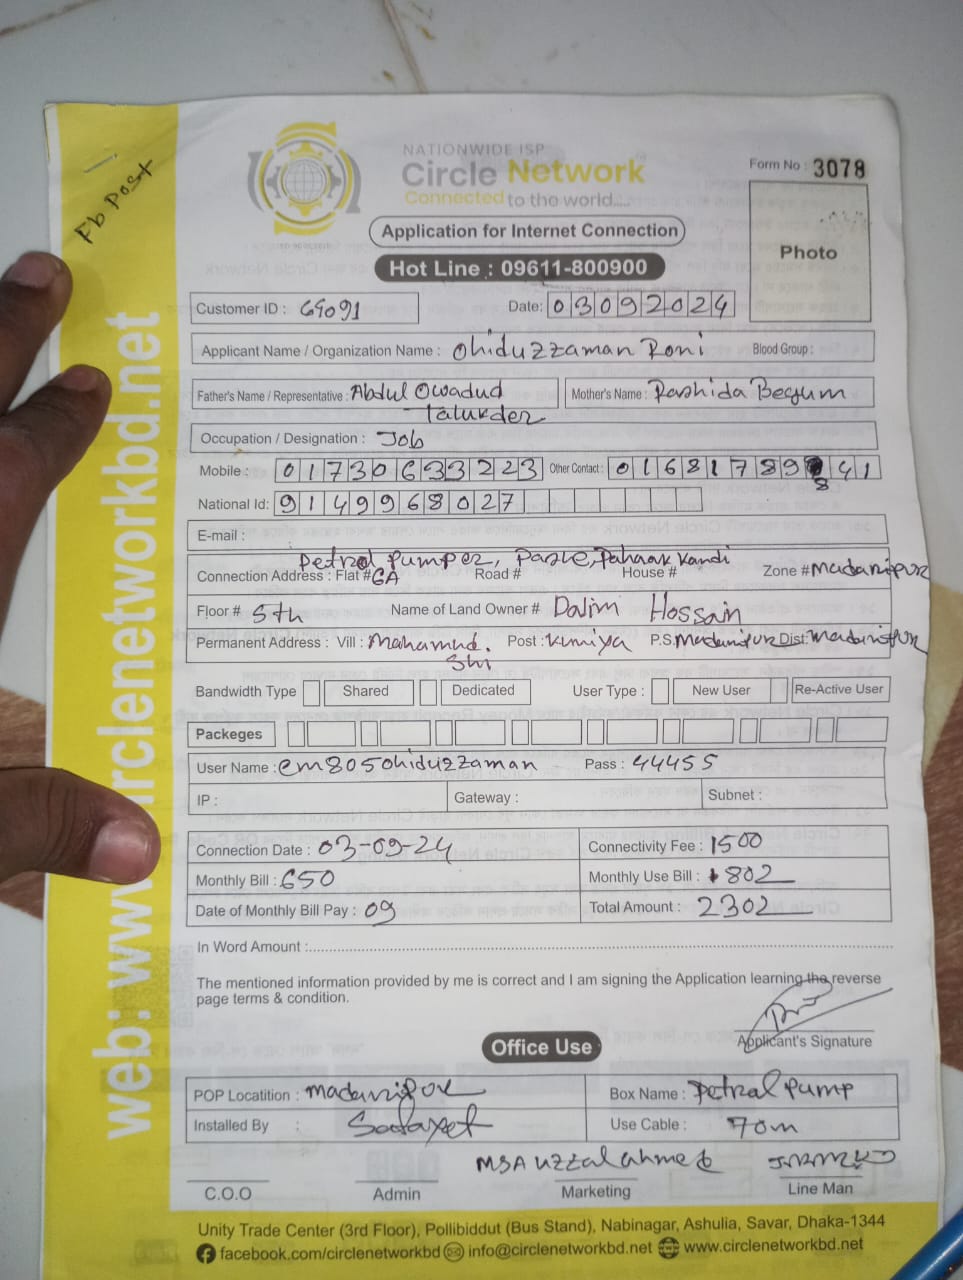 Fb post
web: www.circlenetworkbd.net
NATIONWIDE ISP
Circle Network
Connected to the world....
Form No : 3078
Photo
Application for Internet Connection
Hot Line : 09611-800900
Customer ID : 69091 Date: 03092024
Applicant Name / Organization Name : Ohiduzzaman Roni Blood Group :
Father's Name / Representative : Abdul Owadud Talukder Mother's Name : Rashida Begum
Occupation / Designation : Job
Mobile : 01730633223 Other Contact : 01681789841
National Id: 9149968027
E-mail :
Petrol Pumper, Pahaar Kandi
Connection Address : Flat # 6A Road # House # Zone # Madaripur
Floor # 5th Name of Land Owner # Dalim Hossain
Permanent Address : Vill : Mahamud. Shi Post : Kuniya P.S. Madaripur Dist: Madaripur
Bandwidth Type Shared Dedicated User Type : New User Re-Active User
Packeges
User Name : cm805ohiduzzaman Pass : 44455
IP : Gateway : Subnet :
Connection Date : 03-09-24 Connectivity Fee : 1500
Monthly Bill : 650 Monthly Use Bill : 802
Date of Monthly Bill Pay : 09 Total Amount : 2302
In Word Amount :
The mentioned information provided by me is correct and I am signing the Application learning the reverse
page terms & condition.
Applicant's Signature
Office Use
POP Locatition : Madaripur Box Name : Petral Pump
Installed By : Use Cable : 70m
MSA Uzzal ahmed
C.O.O Admin Marketing Line Man
Unity Trade Center (3rd Floor), Pollibiddut (Bus Stand), Nabinagar, Ashulia, Savar, Dhaka-1344
facebook.com/circlenetworkbd info@circlenetworkbd.net www.circlenetworkbd.net